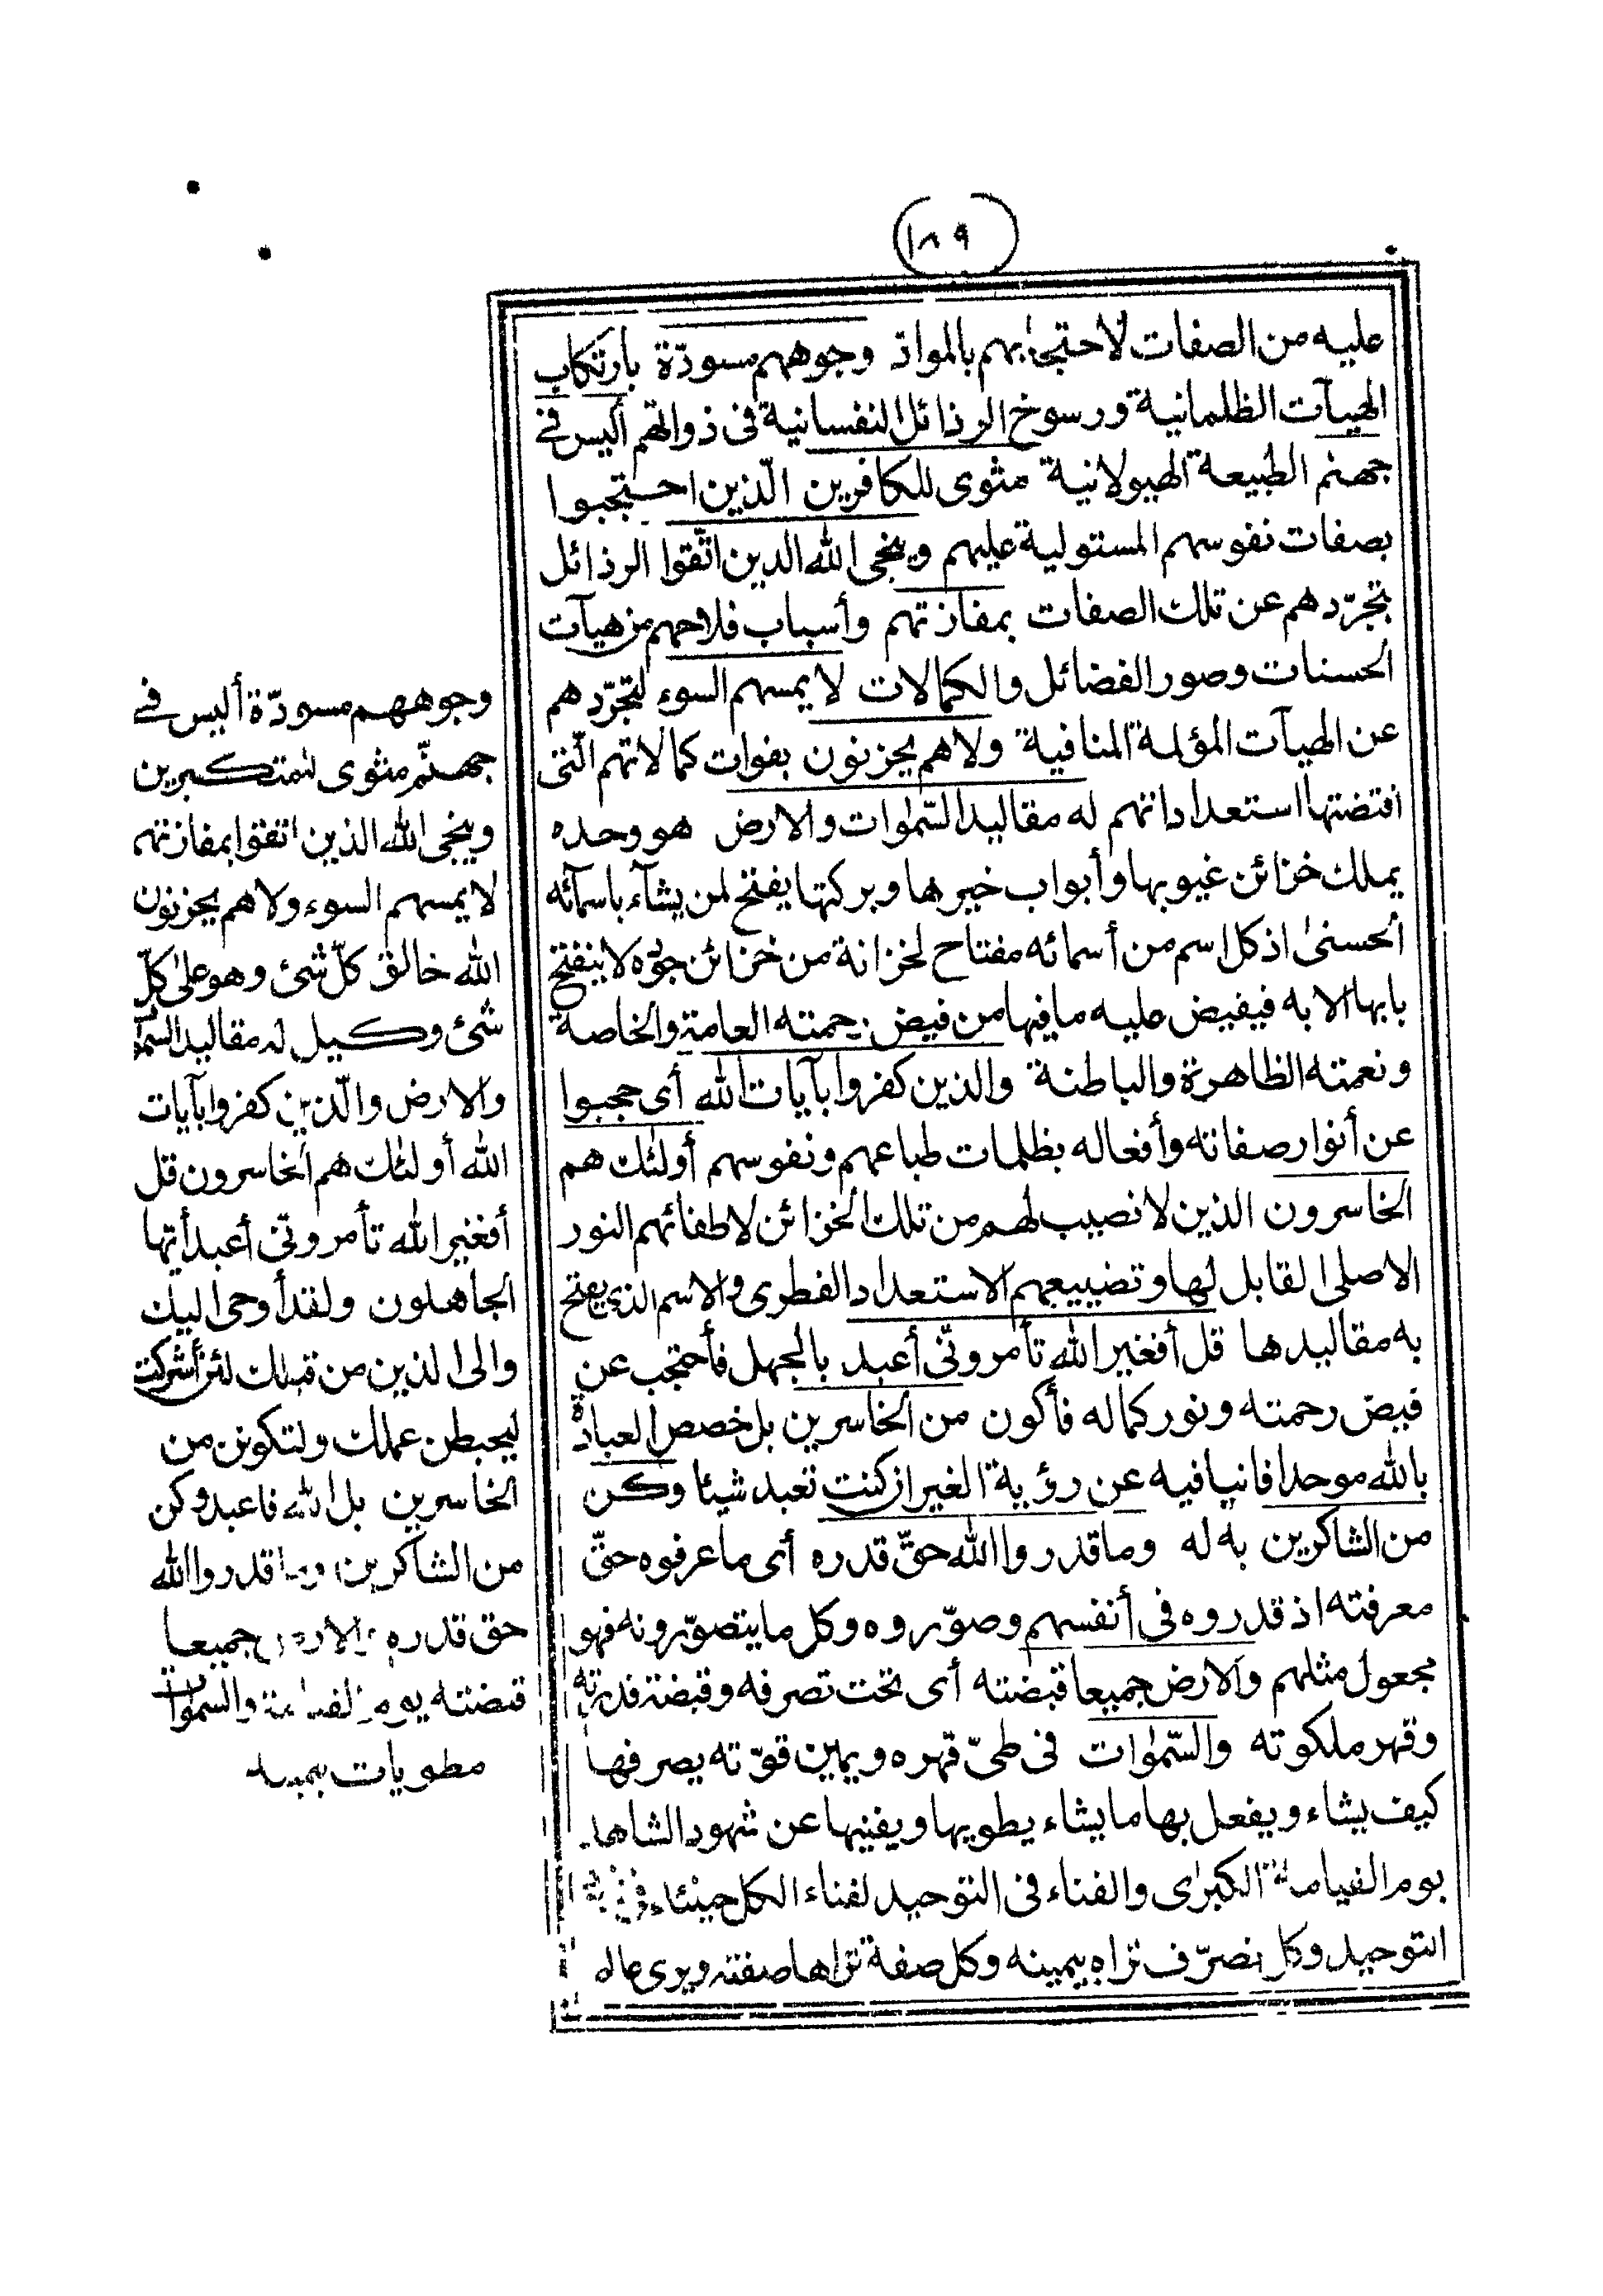 (١٨٩)
عليه من الصفات لاحتجابهم بالموادّ وجوههم مسودّة بارتكاب
الهيآت الظلمانية ورسوخ الرذائل النفسانية فى ذواتهم أليس فى
جهنم الطبيعة الهيولانية مثوى للكافرين الّذين احتجبوا
بصفات نفوسهم المستولية عليهم وينجى الله الدين اتّقوا الرذائل
بتجرّدهم عن تلك الصفات بمفازتهم وأسباب فلاحهم من هيآت
الحسنات وصور الفضائل والكمالات لا يمسهم السوء لتجرّدهم
عن الهيآت المؤلمة المنافية ولا هم يحزنون بفوات كمالاتهم الّتى
اقتضتها استعداداتهم له مقاليد السّموات والارض هو وحده
يملك خزائن غيوبها وأبواب خيرها وبركتها يفتح لمن يشآء باسمآئه
الحسنى اذ كل اسم من أسمائه مفتاح لخزانة من خزائن جوده لا ينفتح
بابها الا به فيفيض عليه ما فيها من فيض رحمته العامة والخاصة
ونعمته الظاهرة والباطنة والذين كفروا بآيات الله أى حجبوا
عن أنوار صفاته وأفعاله بظلمات طباعهم ونفوسهم أولئك هم
الخاسرون الذين لا نصيب لهم من تلك الخزائن لاطفائهم النور
الاصلى القابل لها وتضييعهم الاستعداد الفطرى والاسم الذى يفتح
به مقاليدها قل أفغير الله تأمرونّى أعبد بالجهل فأحتجب عن
فيض رحمته ونور كماله فأكون من الخاسرين بل خصص العبادة
بالله موحدا فانيا فيه عن رؤية الغير ان كنت تعبد شيئا وكن
من الشاكرين به له وما قدروا الله حقّ قدره أى ما عرفوه حقّ
معرفته اذ قدروه فى أنفسهم وصوّروه وكل ما يتصوّرونه فهو
مجعول مثلهم والارض جميعا قبضته أى تحت تصرفه وقبضة قدرته
وقهر ملكوته والسّموات فى طىّ قهره ويمين قوّته يصرفها
كيف يشاء ويفعل بها ما يشاء يطويها ويفنيها عن شهود الشاهد
يوم القيامة الكبرى والفناء فى التوحيد لفناء الكل حينئذ فى
التوحيد وكل تصرّف تراه بيمينه وكل صفة تراها صفته ويرى عالم
وجوههم مسودّة أليس فى
جهنّم مثوى للمتكبرين
وينجى الله الذين اتقوا بمفازتهم
لا يمسهم السوء ولا هم يحزنون
الله خالق كلّ شئ وهو على كلّ
شئ وكيل له مقاليد السموات
والارض والّذين كفروا بآيات
الله أولئك هم الخاسرون قل
أفغير الله تأمرونّى أعبد أيّها
الجاهلون ولقد أوحى اليك
والى الذين من قبلك لئن أشركت
ليحبطن عملك ولتكونن من
الخاسرين بل الله فاعبد وكن
من الشاكرين وما قدروا الله
حق قدره والارض جميعا
قبضته يوم القيامة والسموات
مطويات بيمينه